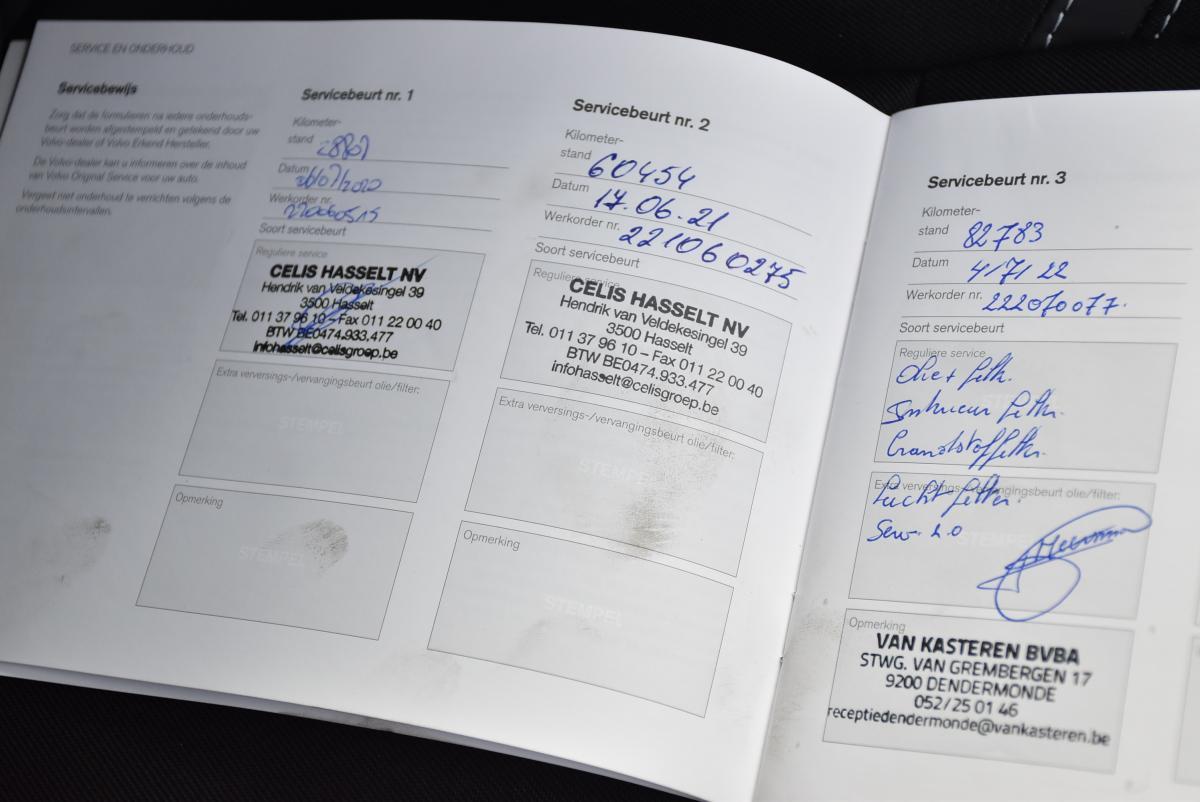 SERVICE EN ONDERHOUD
Servicebewijs
Zorg dat de formulieren na iedere onderhouds-
beurt worden afgestempeld en getekend door uw
Volvo-dealer of Volvo Erkend Hersteller.
De Volvo-dealer kan u informeren over de inhoud
van Volvo Original Service voor uw auto.
Vergeet niet onderhoud te verrichten volgens de
onderhoudsintervallen.
Servicebeurt nr. 1
Kilometer-
stand 28807
Datum /07/2020
Werkorder nr.
220060515
Soort servicebeurt
Reguliere service
CELIS HASSELT NV
Hendrik van Veldekesingel 39
3500 Hasselt
Tel. 011 37 96 10 – Fax 011 22 00 40
BTW BE0474.933.477
infohasselt@celisgroep.be
Extra verversings-/vervangingsbeurt olie/filter:
STEMPEL
Opmerking
STEMPEL
Servicebeurt nr. 2
Kilometer-
stand 60454
Datum 17.06.21
Werkorder nr. 221060275
Soort servicebeurt
Reguliere service
CELIS HASSELT NV
Hendrik van Veldekesingel 39
3500 Hasselt
Tel. 011 37 96 10 – Fax 011 22 00 40
BTW BE0474.933.477
infohasselt@celisgroep.be
Extra verversings-/vervangingsbeurt olie/filter:
STEMPEL
Opmerking
STEMPEL
Servicebeurt nr. 3
Kilometer-
stand 82783
Datum 4/7/22
Werkorder nr. 222070077.
Soort servicebeurt
Reguliere service
Olie + filt.
Interieur filter.
Brandstoffilter.
Extra verversings-/vervangingsbeurt olie/filter:
Lucht filter.
Serv. 2.0
STEMPEL
Opmerking
VAN KASTEREN BVBA
STWG. VAN GREMBERGEN 17
9200 DENDERMONDE
052/25 01 46
receptiedendermonde@vankasteren.be